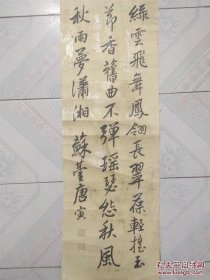 綠雲飛舞鳳翎長翠葆輕搖玉
節香舊曲不彈瑶瑟怨秋風
秋雨夢瀟湘 蘇臺唐寅